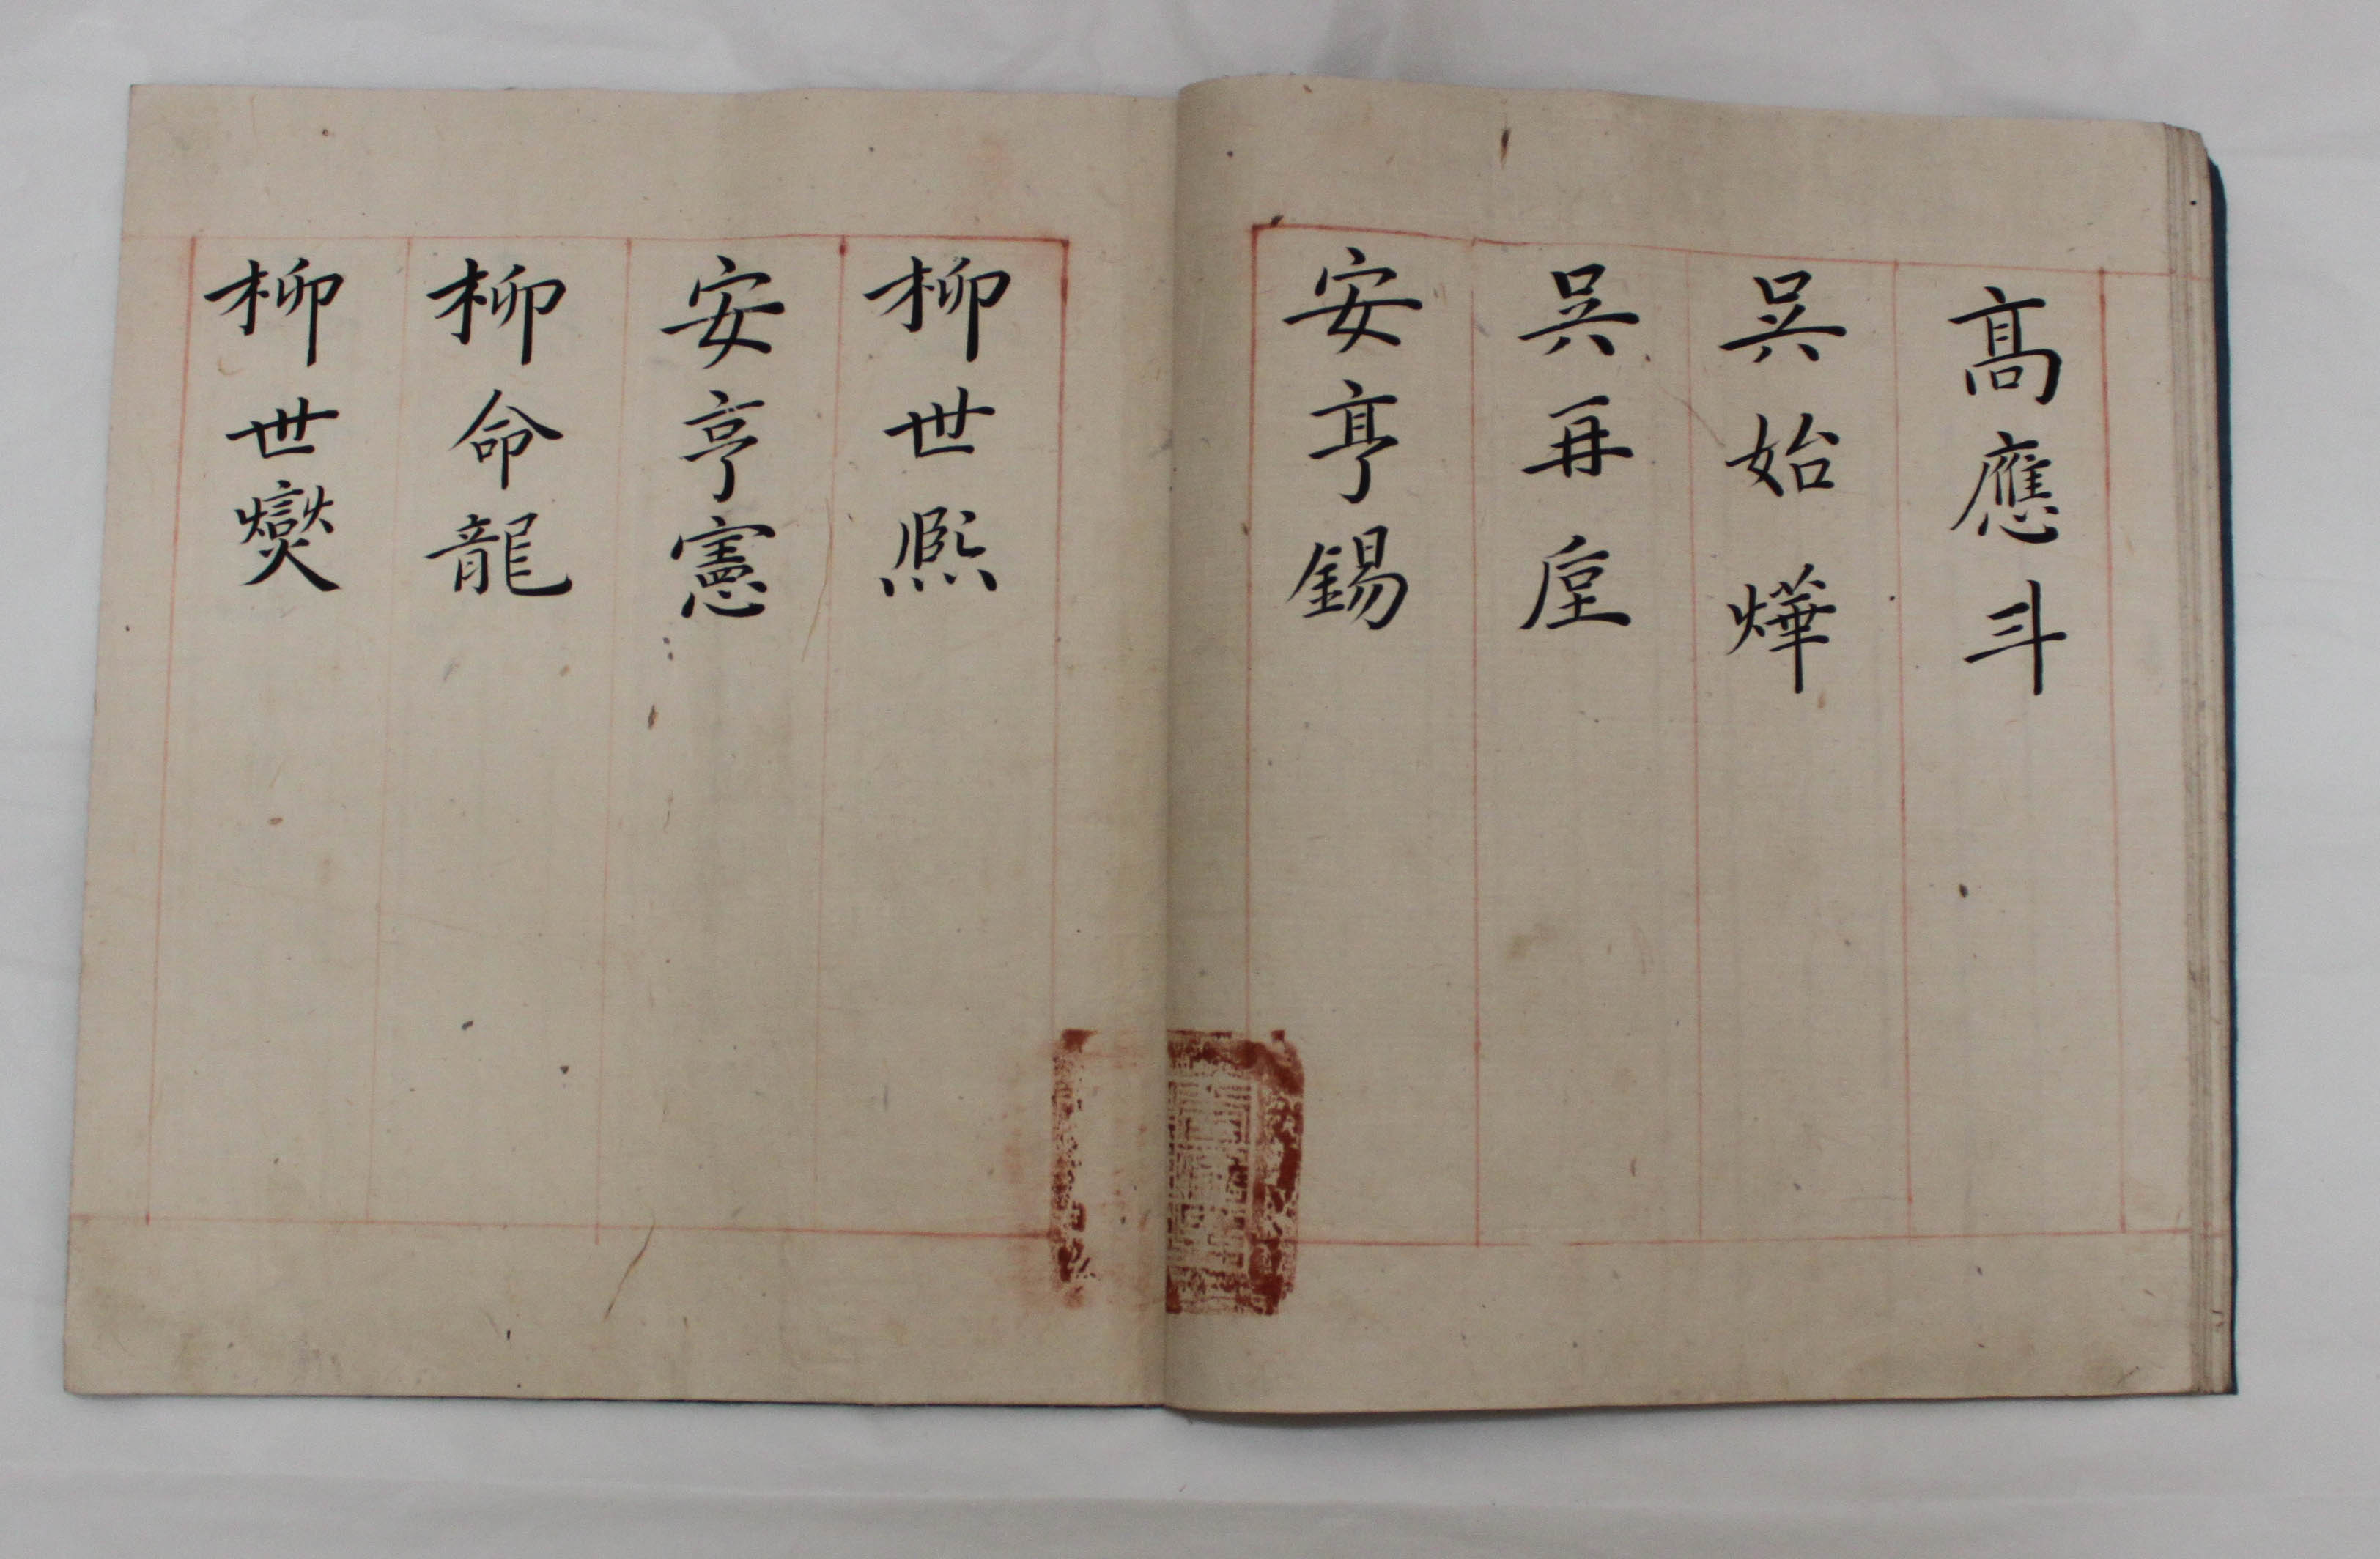 髙應斗
吳始燁
吳再垕
安亨錫
柳世熙
安亨憲
柳命龍
柳世燮